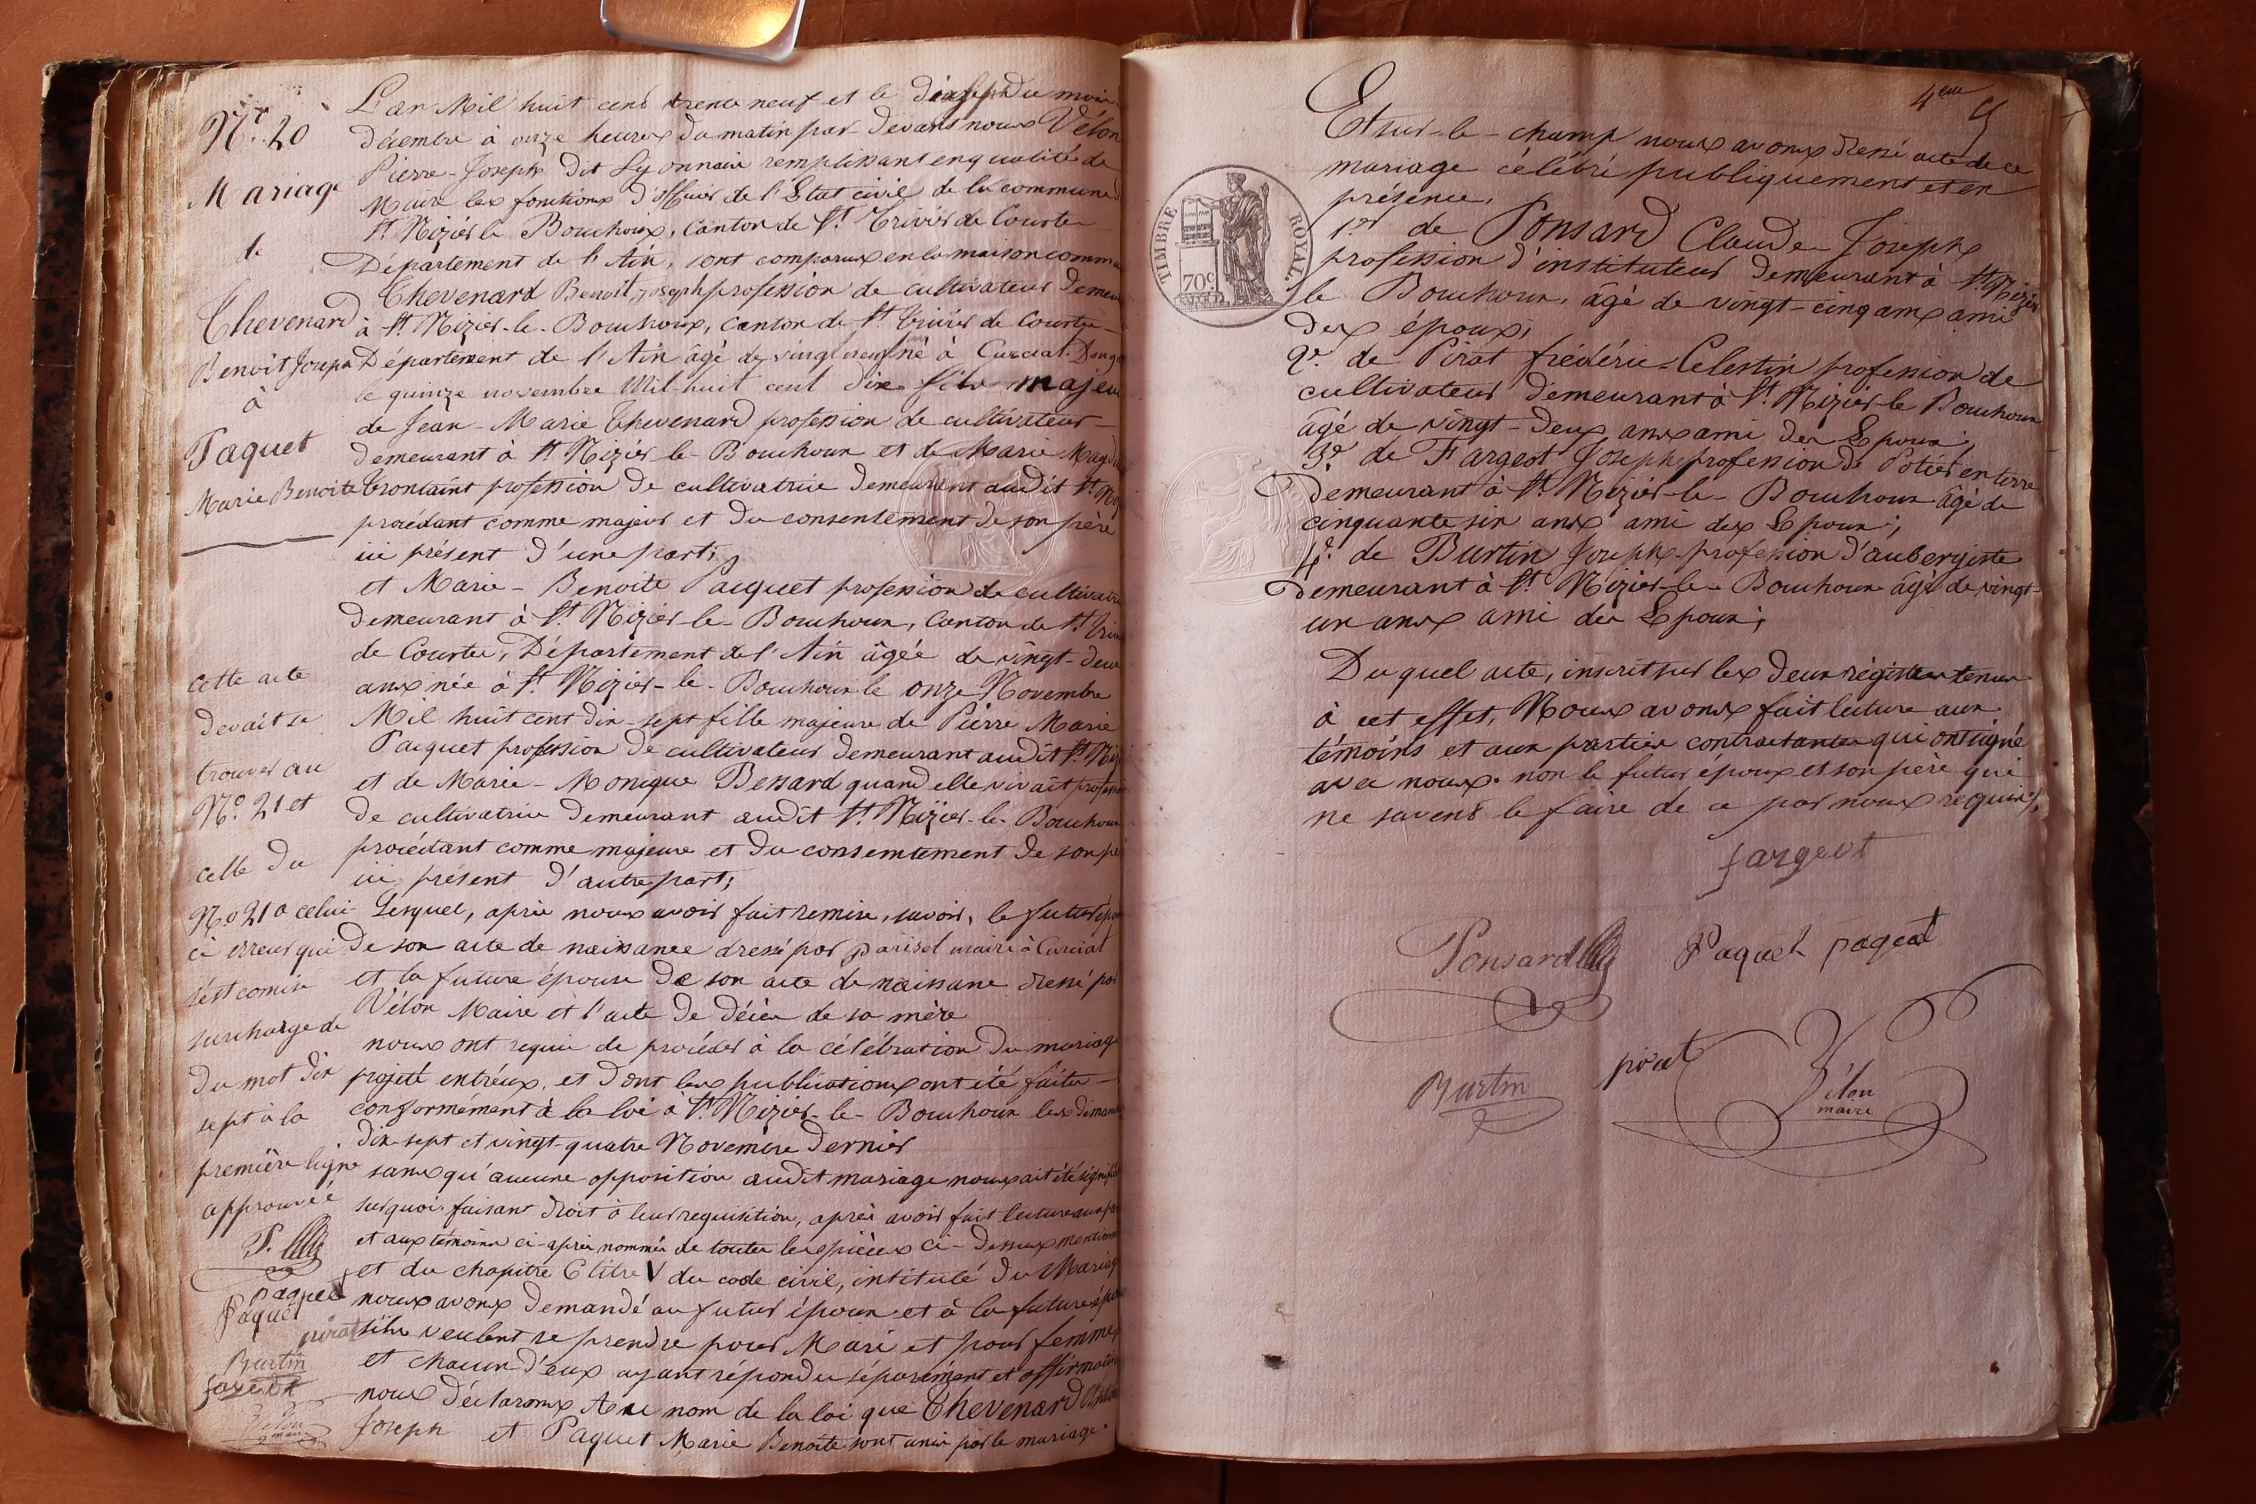 N.r 20
Mariage
de
Chevenard
Benoît Joseph
à
Paquet
Marie Benoite
cette acte
devait se
trouver au
N.o 21 et
celle du
No 21 a celui-
ci erreur qui
s'est comise
surcharge de
du mot dix
sept à la
première ligne
approuvée
P.
paquet
Paquet
pirat
Burtin
fargeot
Vélon
maire
L'an Mil huit cent trente neuf et le dixsept du mois
décembre à onze heures du matin par devant nous Vélon
Pierre-Joseph dit Lyonnais remplissant en qualité de
Maire les fonctions d'officier de l'Etat civil de la commune d
St. Nizier le Bouchoux, canton de St. Trivier de Courtes
Département de l'Ain, sont comparus en la maison commu
Chevenard Benoît, Joseph profession de cultivateur demeu
à St. Nizier-le-Bouchoux, canton de St. Trivier de Courtes-
Département de l'Ain âgé de vingt neuf né à Curciat-Dong
le quinze novembre Mil huit cent dix fils majeu
de Jean-Marie Chevenard profession de cultivateur-
demeurant à St. Nizier-le-Bouchoux et de Marie Magd
profession de cultivatrice demeurant audit St. Niz
procédant comme majeur et du consentement de son père
ici présent d'une part;
et Marie-Benoite Pacquet profession de cultivatri
demeurant à St. Nizier-le-Bouchoux, Canton de St. Triv
de Courtes, Département de l'Ain âgée de vingt-deux
ans née à St. Nizier-le-Bouchoux le onze Novembre
Mil huit cent dix-sept fille majeure de Pierre Marie
Pacquet profession de cultivateur demeurant audit St. Nizi
et de Marie-Monique Bessard quand elle vivait profession
de cultivatrice demeurant audit St. Nizier-le-Bouchoux
procédant comme majeure et du consentement de son pè
ici présent d'autre part;
Lesquels, après nous avoir fait remise, savoir, le futur épo
de son acte de naissance dressé par parisel maire à Curciat
et la future épouse de son acte de naissance dressé par
Vélon Maire et l'acte de décès de sa mère
nous ont requis de procéder à la célébration du mariage
projeté entr'eux, et dont les publications ont été faites-
conformément à la loi à St. Nizier-le-Bouchoux les dimanc
dix-sept et vingt-quatre Novembre dernier
sans qu'aucune opposition audit mariage nous ait été signifiée
sur quoi faisant droit à leur requisition, après avoir fait lecture aux par
et aux témoins ci-après nommés de toutes les pièces ci-dessus mention
et du chapitre 6 titre V du code civil, intitulé du Mariage
nous avons demandé au futur époux et à la future épo
s'ils veulent se prendre pour Mari et pour femme
et chacun d'eux ayant répondu séparément et affirmativ
nous déclarons Au nom de la loi que Chevenard Benoît
Joseph et Paquet Marie Benoite sont unis par le mariage.
4eme
Et sur-le-champ nous avons dressé acte de ce
mariage célébré publiquement et en
présence,
1er de Ponsard Claude Joseph
profession d'instituteur demeurant à St. Nizier
le Bouchoux, âgé de vingt-cinq ans ami
des époux;
2e. de Pirat frédéric-Celestin profession de
cultivateur demeurant à St. Nizier-le Bouchoux
âgé de vingt-deux ans ami des Epoux;
3e. de Fargeot Joseph profession de Potier en terre
demeurant à St. Nizier-le-Bouchoux âgé de
cinquante six ans ami des Epoux;
4e. de Burtin Joseph profession d'aubergiste
demeurant à St. Nizier-le-Bouchoux âgé de vingt-
un ans ami des Epoux;
Du quel acte, inscrit sur les deux régistres tenus
à cet effet, Nous avons fait lecture aux
témoins et aux parties contractantes qui ont signé
avec nous. non le futur époux et son père qui
ne savent le faire de ce par nous requis.
fargeot
Ponsard
Paquet
paqeat
Burtin
pirat
Vélon
maire
TIMBRE ROYAL.
70c